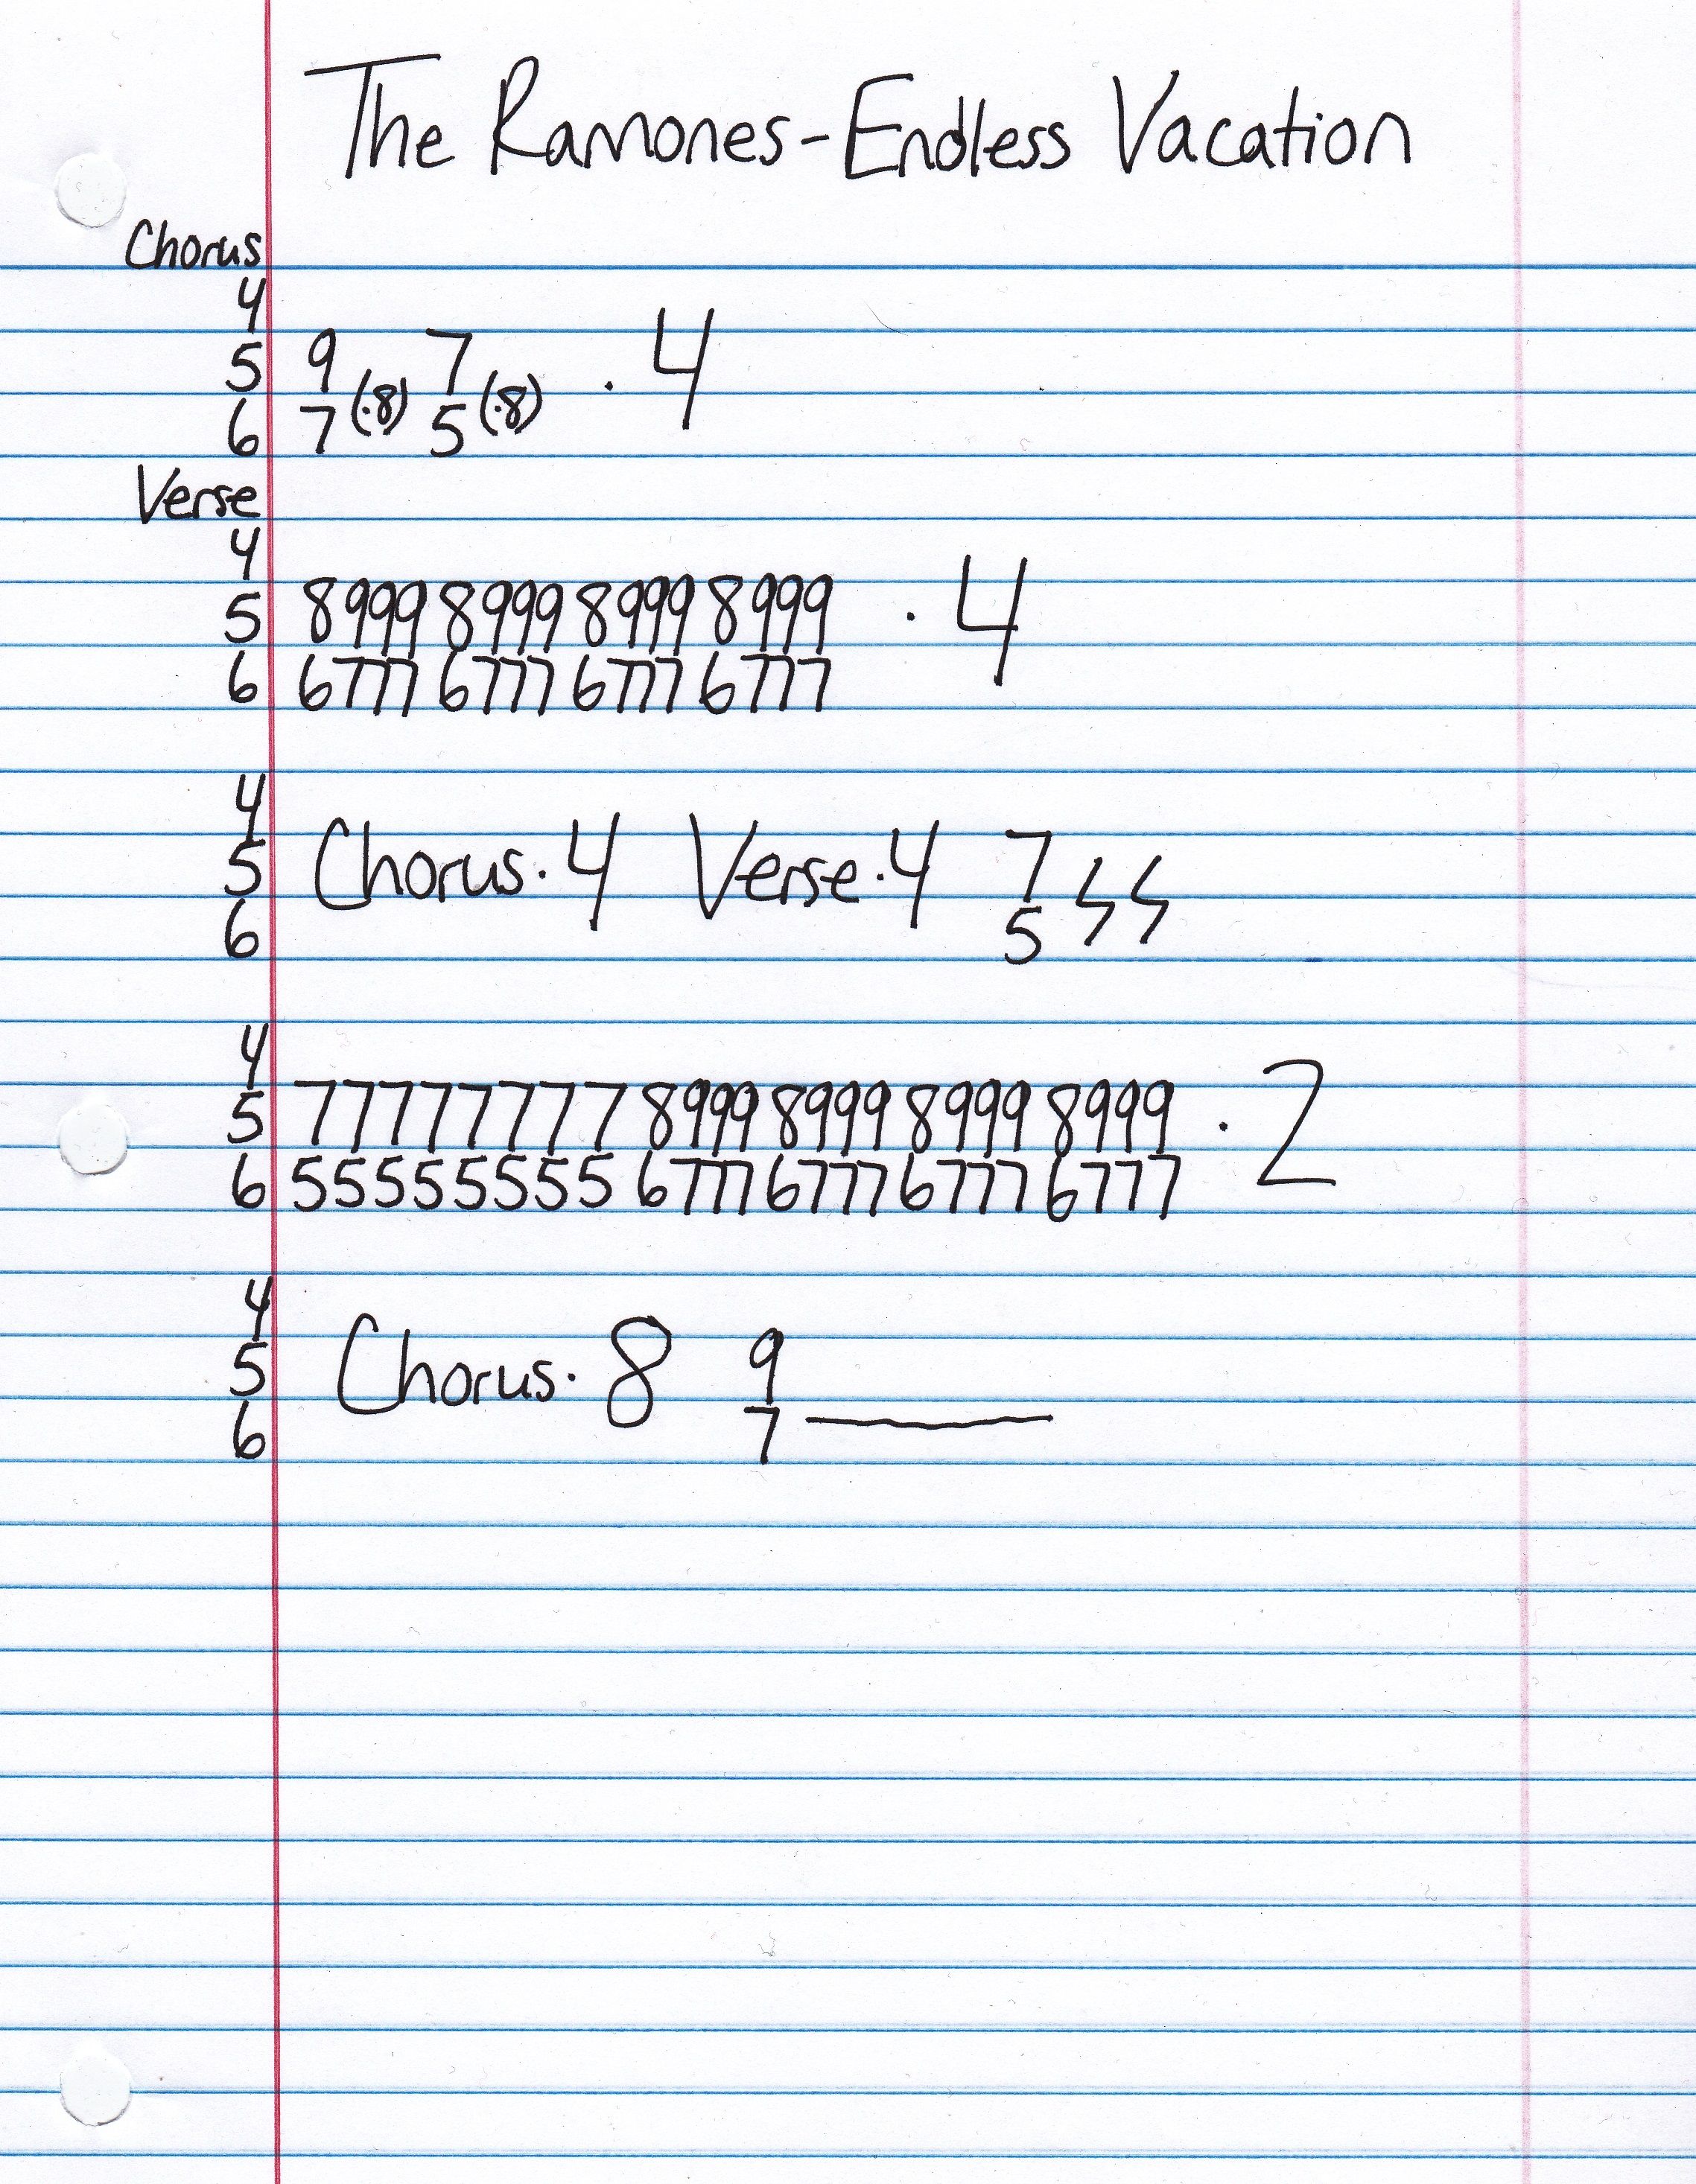 The Ramones-Endless Vacation
Chorus
4
5 9 7 · 4
6 7 (·8) 5 (·8)
Verse
4
5 8999 8999 8999 8999 · 4
6 6777 6777 6777 6777
4
5 Chorus·4 Verse·4 7
6 5
4
5 77777777 8999 8999 8999 8999 · 2
6 55555555 6777 6777 6777 6777
4
5 Chorus·8 9
6 7